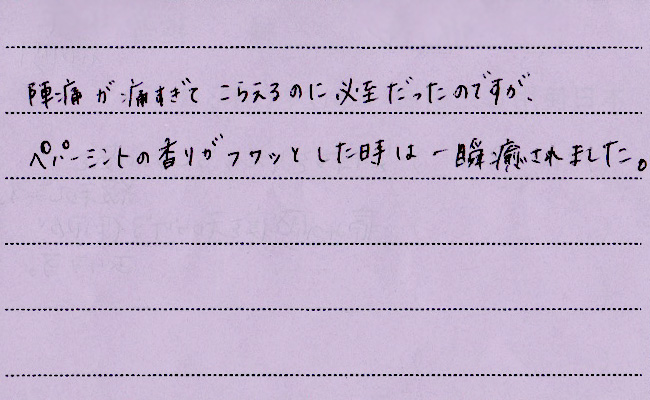 陣痛が痛すぎてこらえるのに必至だったのですが、
ペパーミントの香りがフワッとした時は一瞬癒されました。